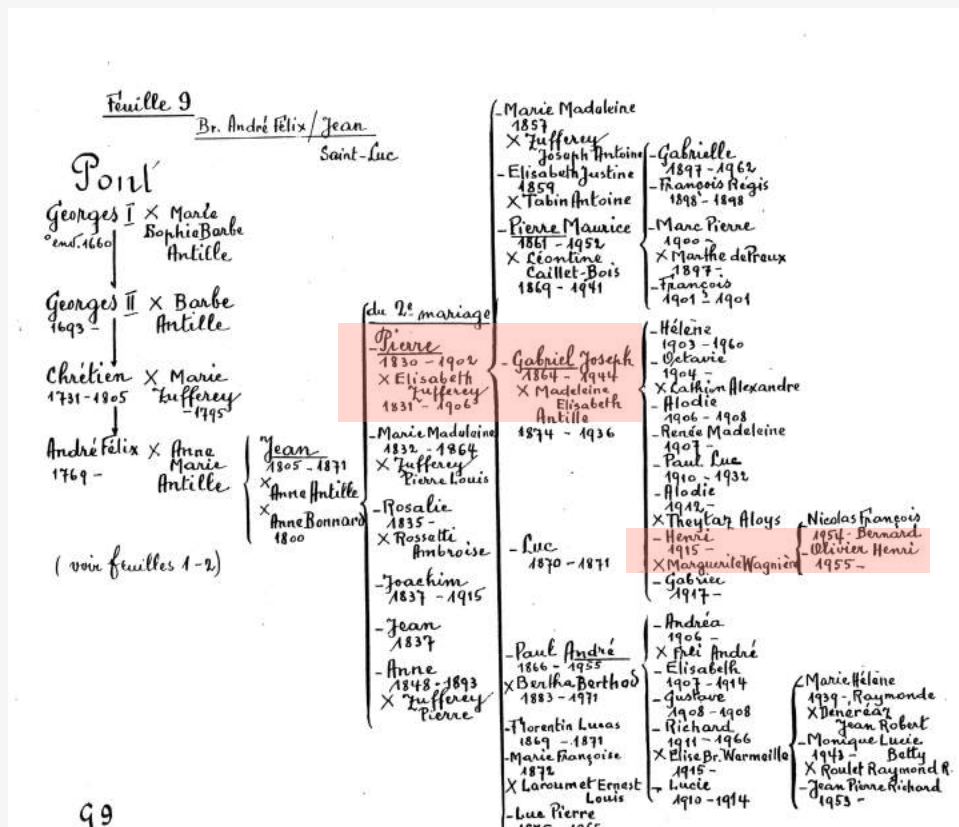 Feuille 9
Br. André Félix / Jean
Saint-Luc
Pont
Georges I X Marie
° env. 1660 Sophie Barbe
Antille
Georges II X Barbe
1693 - Antille
Chrétien X Marie
1731-1805 Zufferey
-1795
André Félix X Anne
1769 - Marie
Antille
( voir feuilles 1-2)
G9
Jean
1805 - 1871
X
Anne Antille
X
Anne Bonnard
1800
du 2e mariage
- Pierre
1830 - 1902
X Elisabeth
Zufferey
1831 - 1906
- Marie Madeleine
1832 - 1864
X Zufferey
Pierre Louis
- Rosalie
1835 -
X Rossetti
Ambroise
- Joachim
1837 - 1915
- Jean
1837
- Anne
1848 - 1893
X Zufferey
Pierre
- Marie Madeleine
1857
X Zufferey
Joseph Antoine
- Elisabeth Justine
1859
X Tabin Antoine
- Pierre Maurice
1861 - 1952
X Léontine
Caillet-Bois
1869 - 1941
- Gabriel Joseph
1864 - 1944
X Madeleine
Elisabeth
Antille
1874 - 1936
- Luc
1870 - 1871
- Paul André
1866 - 1955
X Bertha Berthod
1883 - 1971
- Florentin Lucas
1869 - 1871
- Marie Françoise
1872
X Laroumet Ernest
Louis
- Luc Pierre
- Gabrielle
1897 - 1962
- François Régis
1898 - 1898
- Marc Pierre
1900 -
X Marthe de Preux
1897 -
- François
1901 - 1901
- Hélène
1903 - 1960
- Octavie
1904 -
X Lathion Alexandre
- Alodie
1906 - 1908
- Renée Madeleine
1907 -
- Paul Luc
1910 - 1932
- Alodie
1912 -
X Theytaz Aloys
- Henri
1915 -
X Marguerite Wagnière
- Gabriel
1917 -
- Andréa
1906 -
X Frei André
- Elisabeth
1907 - 1914
- Gustave
1908 - 1908
- Richard
1911 - 1966
X Elise Br. Warmeille
1915 -
- Lucie
1910 - 1914
Nicolas François
1954 - Bernard
- Olivier Henri
1955 -
- Marie Hélène
1939 - Raymonde
X Dénéréaz
Jean Robert
- Monique Lucie
1943 - Betty
X Roulet Raymond R.
- Jean Pierre Richard
1953 -